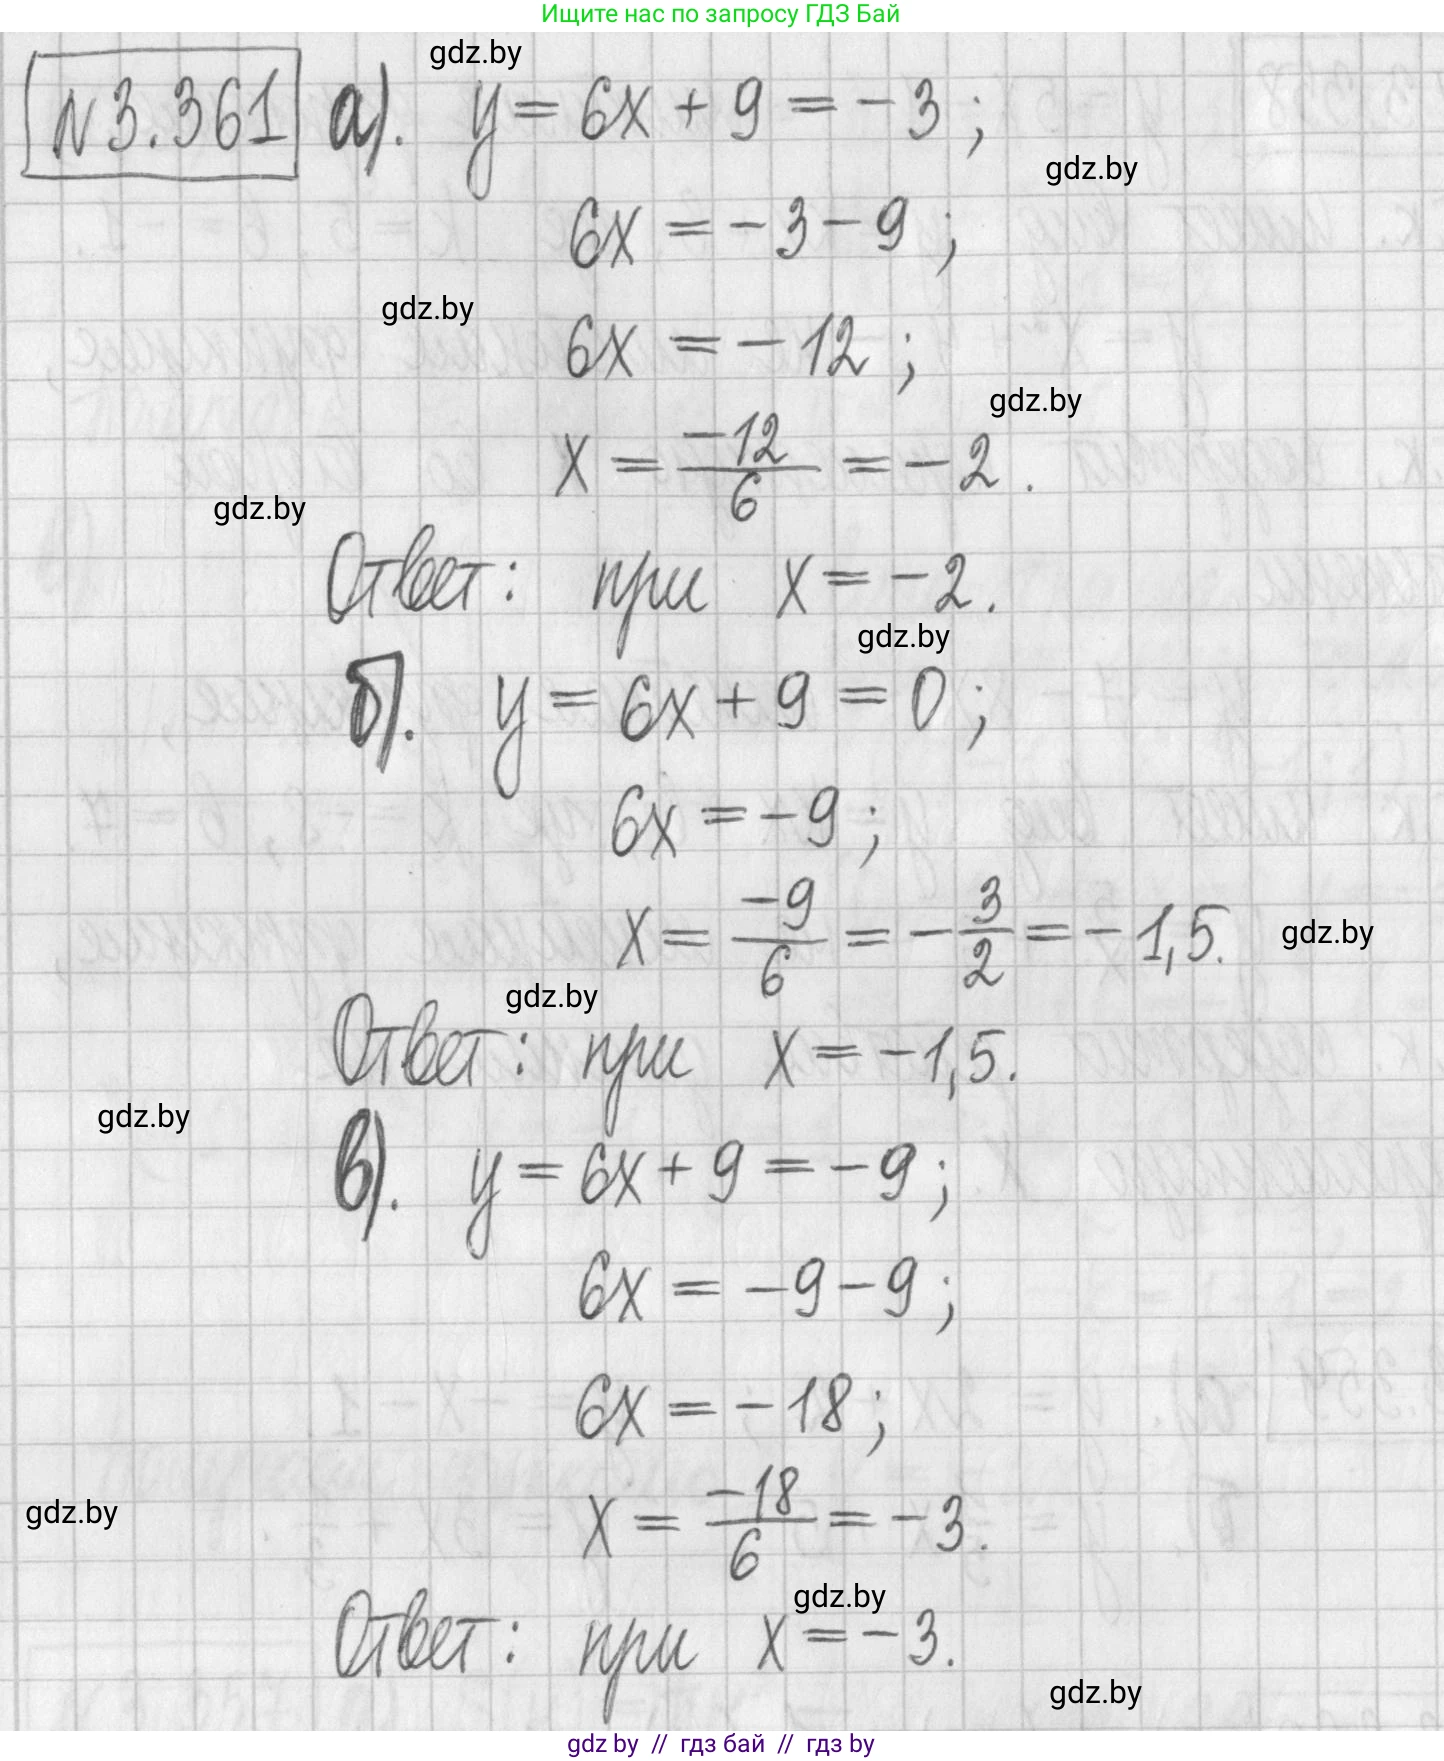 Ищите нас по запросу ГДЗ Бай
gdz.by
N3.361 а). y = 6x + 9 = -3;
gdz.by
6x = -3 - 9;
gdz.by
6x = -12;
gdz.by
x = -12/6 = -2.
gdz.by
Ответ: при x = -2.
gdz.by
б). y = 6x + 9 = 0;
6x = -9;
x = -9/6 = -3/2 = -1,5.
gdz.by
gdz.by
Ответ: при x = -1,5.
gdz.by
в). y = 6x + 9 = -9;
6x = -9 - 9;
6x = -18;
x = -18/6 = -3.
gdz.by
gdz.by
Ответ: при x = -3.
gdz.by
gdz by // гдз бай // гдз by